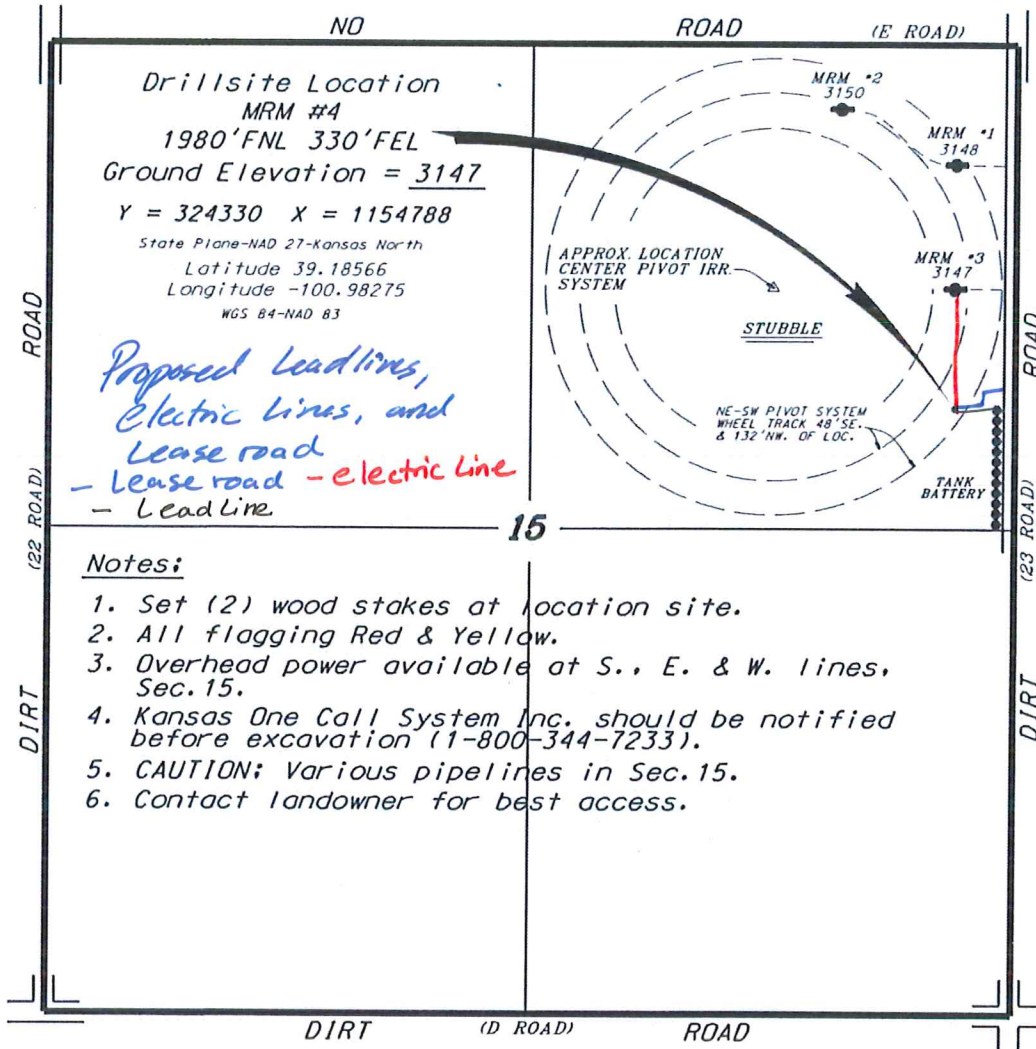 NO ROAD (E ROAD)
Drillsite Location
MRM #4
1980'FNL 330'FEL
Ground Elevation = 3147
Y = 324330 X = 1154788
State Plane-NAD 27-Kansas North
Latitude 39.18566
Longitude -100.98275
WGS 84-NAD 83
Proposed Leadlines,
electric Lines, and
Lease road
- Lease road - electric Line
- Lead Line
MRM #2
3150
MRM #1
3148
MRM #3
3147
APPROX. LOCATION
CENTER PIVOT IRR.
SYSTEM
STUBBLE
NE-SW PIVOT SYSTEM
WHEEL TRACK 48'SE.
& 132'NW. OF LOC.
TANK
BATTERY
15
ROAD
(22 ROAD)
DIRT
ROAD
(23 ROAD)
DIRT
Notes:
1. Set (2) wood stakes at location site.
2. All flagging Red & Yellow.
3. Overhead power available at S., E. & W. lines,
Sec. 15.
4. Kansas One Call System Inc. should be notified
before excavation (1-800-344-7233).
5. CAUTION: Various pipelines in Sec. 15.
6. Contact landowner for best access.
DIRT (D ROAD) ROAD